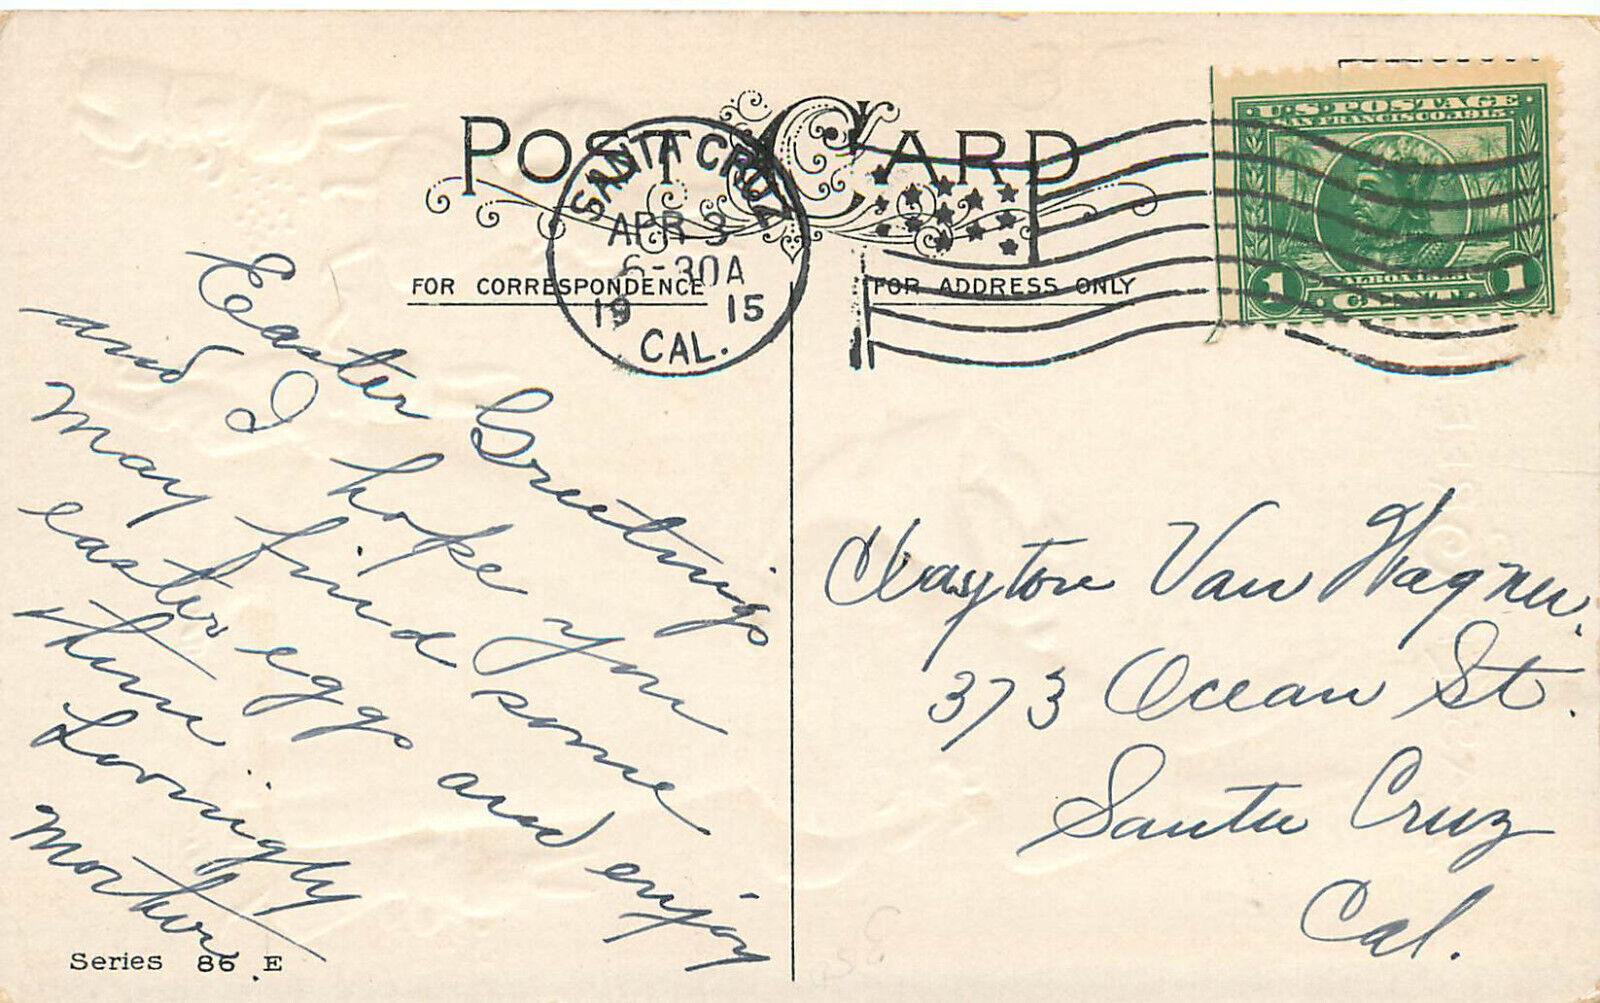 POST CARD
SANTA CRUZ
APR 3
6-30A
1915
CAL.
U.S. POSTAGE
SAN FRANCISCO 1915
1 1
FOR CORRESPONDENCE
FOR ADDRESS ONLY
Easter Greetings
and I hope you
may find some
easter eggs and enjoy
them
Lovingly
Clayton Van Wagner.
373 Ocean St.
Santa Cruz
Cal.
Series 86 E